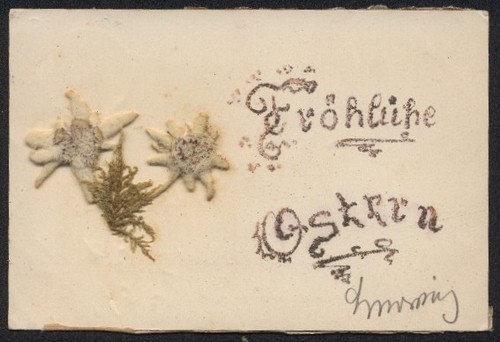 Fröhliche
Ostern